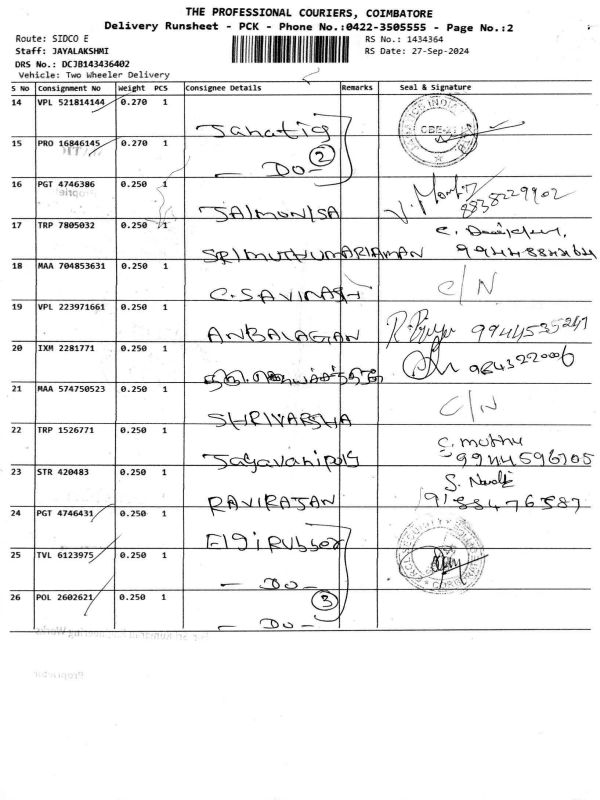 THE PROFESSIONAL COURIERS, COIMBATORE
Delivery Runsheet - PCK - Phone No.:0422-3505555 - Page No.:2
Route: SIDCO E
RS No.: 1434364
Staff: JAYALAKSHMI
RS Date: 27-Sep-2024
DRS No.: DCJB143436402
Vehicle: Two Wheeler Delivery
S No Consignment No Weight PCS Consignee Details Remarks Seal & Signature
14 VPL 521814144 0.270 1
15 PRO 16846145 0.270 1 - Do - 2
16 PGT 4746386 0.250 1 8838229902
17 TRP 7805032 0.250 1 SRIMUTHUMARIAMAN
18 MAA 704853631 0.250 1 C.SAVINASH C/N
19 VPL 223971661 0.250 1 ANBALAGAN 9944535247
20 IXM 2281771 0.250 1 9843220006
21 MAA 574750523 0.250 1 SHRIVARSHA C/N
22 TRP 1526771 0.250 1 C. muthu
23 STR 420483 0.250 1 RAVIRAJAN
24 PGT 4746431 0.250 1 Elgi Rubber
25 TVL 6123975 0.250 1 - Do -
26 POL 2602621 0.250 1 - Do - 3